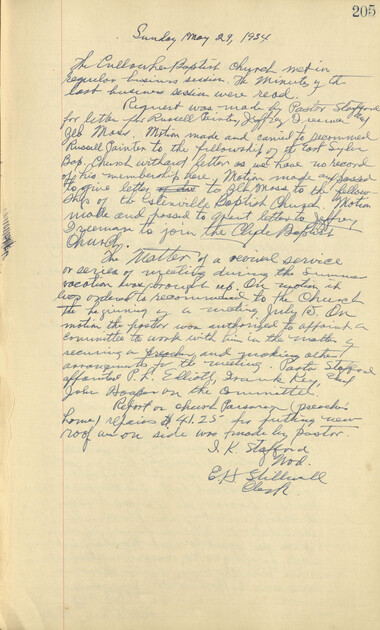 205
Sunday May 29, 1934
The Cullowhee Baptist Church met in
regular business session. The Minutes of the
last business session were read.
Request was made by Pastor Stafford
for letter for Russell Painter, Jeffrey Freeman and
Zeb Moss. Motion made and carried to recommend
Russell Painter to the fellowship of the East Sylva
Bap. Church without letter as we have no record
of his membership here. Motion made and passed
to give letter to Zeb Moss to the fellow-
ship of the Glenville Baptist Church. Motion
made and passed to grant letter to Jeffrey
Freeman to join the Clyde Baptist
Church.
The Matter of a revival service
or series of meeting during the Summer
vacation was brought up. On motion it
was ordered to recommended to the Church
the beginning of a meeting, July 15. On
motion the pastor was authorized to appoint a
committee to work with him in the matter of
securing a preacher and making other
arrangements for the meeting. Pastor Stafford
appointed P. L. Elliott, Frank Key, and
John Hooper on the Committee.
Report on church Parsonage (preachers
home) repairs $41.25 for putting new
roof on one side was made by pastor.
I. K. Stafford
Mod.
E. H. Stillwell
Clerk.